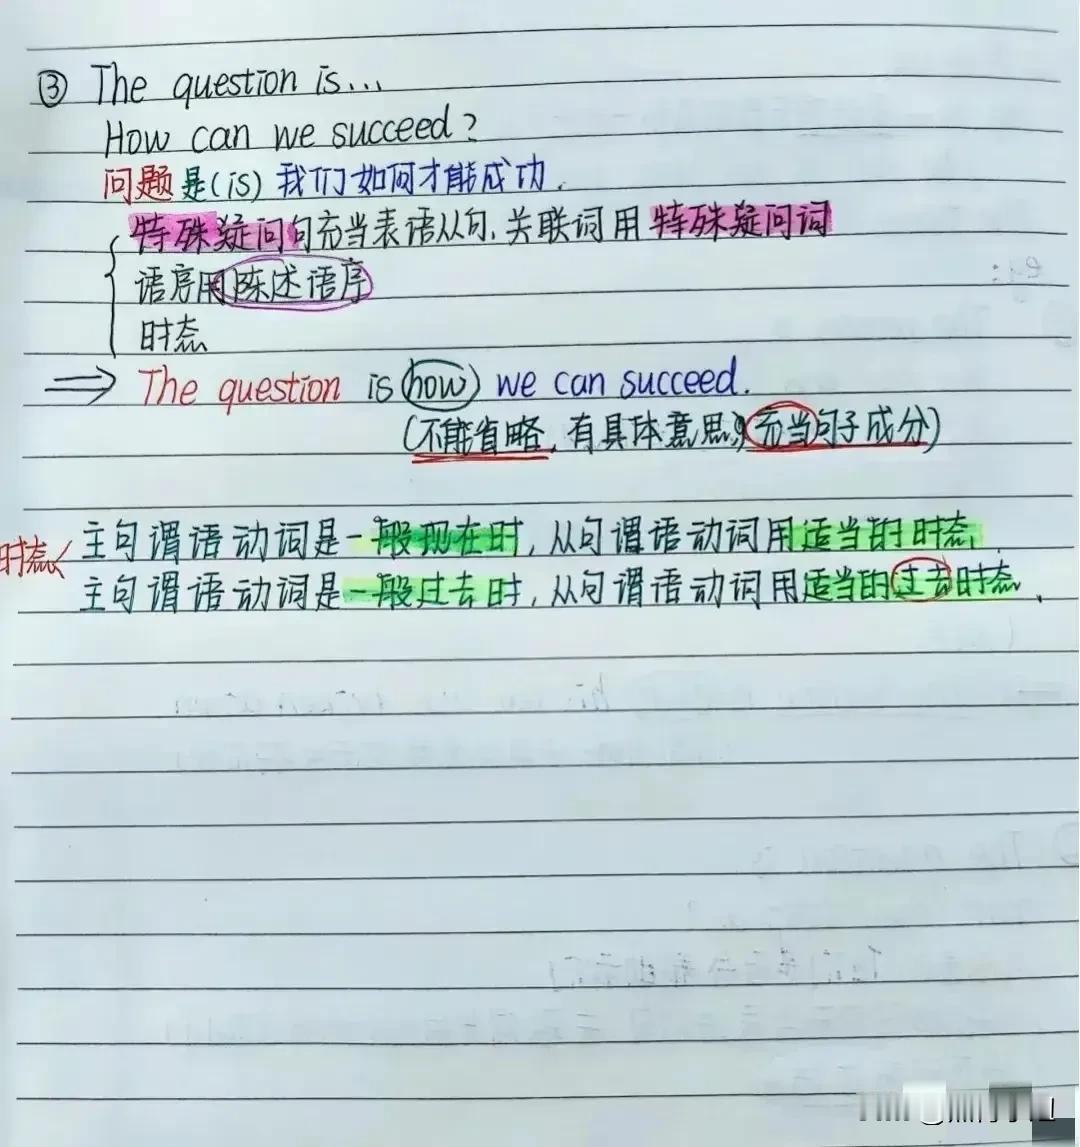 ③ The question is...
How can we succeed?
问题是(is)我们如何才能成功.
特殊疑问句充当表语从句,关联词用特殊疑问词
语序用陈述语序
时态
⇒ The question is how we can succeed.
(不能省略,有具体意思,充当句子成分)
时态 主句谓语动词是一般现在时,从句谓语动词用适当的时态.
主句谓语动词是一般过去时,从句谓语动词用适当的过去时态.